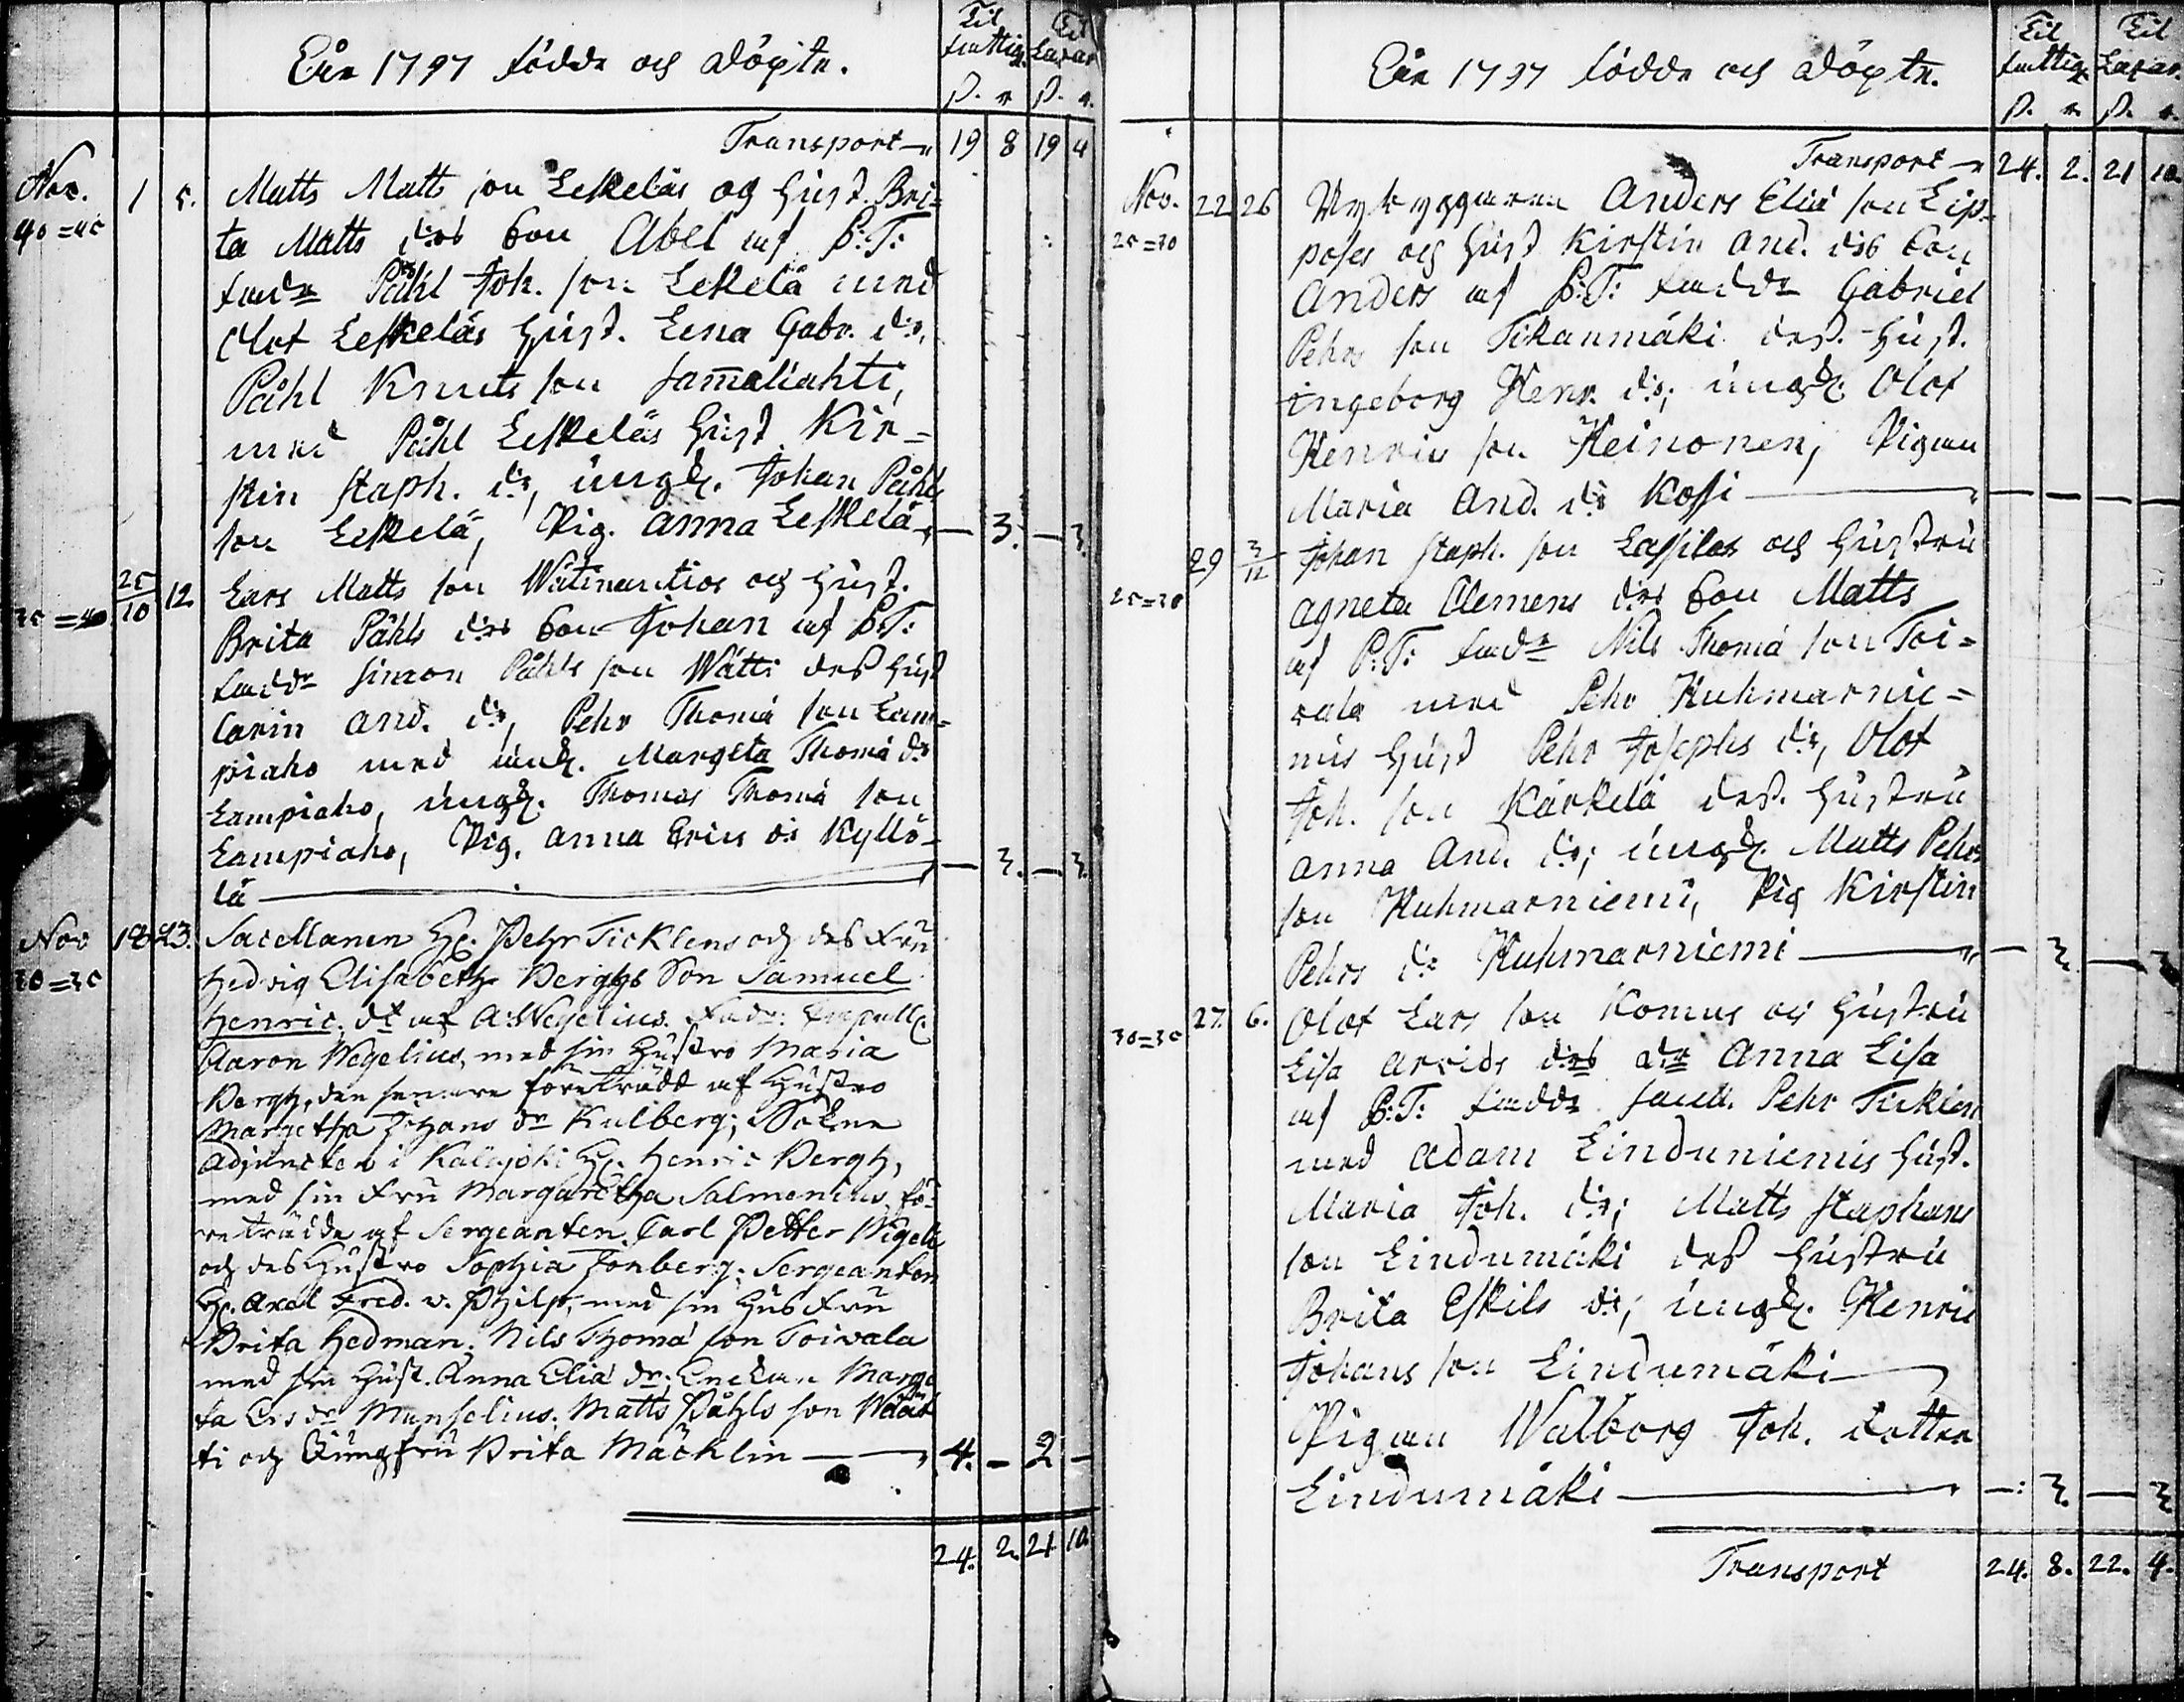 Åhr 1797 födde och döpte.
Til fattig. Til Lazar.
Transport 19 8 19 4
Nov. 1 5. Matts Matts son Leskeläs och Hust. Bri-
40=45 ta Matts drs Son Abel af P:T:
fadr Påhl Joh. son Leskelä med
Olof Leskeläs Hust. Lena Gabr. dr,
Påhl Knuts son Jam̄aliahti,
med Påhl Leskeläs Hust Kir-
stin Staph. dr, ungk. Johan Påhls
son Leskelä, Pig. Anna Leskelä — 3. — 3.
25/10 12 Lars Matts son och Hust.
Brita Påhls drs Son Johan af P:T:
faddr Simon Påhls son Wätti des Hust
Carin And. dr, Pehr Thomä son Lam-
piaho med Margeta Thomä dr
Lampiaho, ungk. Thomas Thomä son
Lampiaho, Pig. Anna Erics dr Kyllö-
lä — 3. — 3.
Nov 18 23. Sacellanen H. Pehr Ticklens och des Fru
30=35 Hedvig Elisabeth Berghs Son Samuel
Henric, dt af A: Wegelius. Fadr:
Aaron Wegelius, med sin Hustro Maria
Bergh, den senare företrädd af Hustro
Margetha Johans dr Kulberg; Sokne
Adjuncten i Kalajoki H. Henric Bergh,
med sin Fru Margaretha Salmenius, fö-
reträdde af Sergeanten Carl Petter
och des Hustro Sophia Zonberg; Sergeanten
H. Axel Fred. v. med sin Hus Fru
Brita Hedman; Nils Thomä son Toivala
med sin Hust. Anna Eliä dr; Enckan Marge
ta dr Munselius. Matts Påhls son Wäät
ti och Jungfru Brita Mäcklin 4. - 2 -
24. 2. 21 10.
Åhr 1797 födde och döpte.
Til fattig. Til Lazar.
Transport 24. 2. 21 10.
Nov. 22 26 Nybyggaren Anders Eliä son Lip-
25=30 poses och Hust Kirstin And. drs Son
Anders af P:T: faddr Gabriel
Pehrs son Tikanmäki des Hust.
Ingeborg Henr. dr; ungk. Olof
Henrics son Heinonen, Pigan
Maria And. dr Kossi — — — —
29 3/12 Johan Staph. son Lassilas och Hustru
25=30 Agneta Clemens drs Son Matts
af P:T: fadr Nils Thomä son Toi-
vala med Pehr Kuhmarnie-
mis Hust Pehr Josephs dr, Olof
Joh. son Kärkelä des Hustru
Anna And. dr; ungk. Matts Pehrs
son Kuhmarniemi, Pig Kirstin
Pehrs dr Kuhmarniemi — 3. — 3
27. 6. Olof Lars son Komus och Hustru
30=35 Lisa Arvids drs dr Anna Lisa
af P:T: faddr Sacell. Pehr Ticklen
med Adam Linduniemis Hust.
Maria Joh. dr; Matts Staphans
son Lindumäki des Hustru
Brita Eskils dr; ungk. Henric
Johans son Lindumäki
Pigan Walborg Joh. dotter
Lindumäki —: 3. — 3
Transport 24. 8. 22. 4.